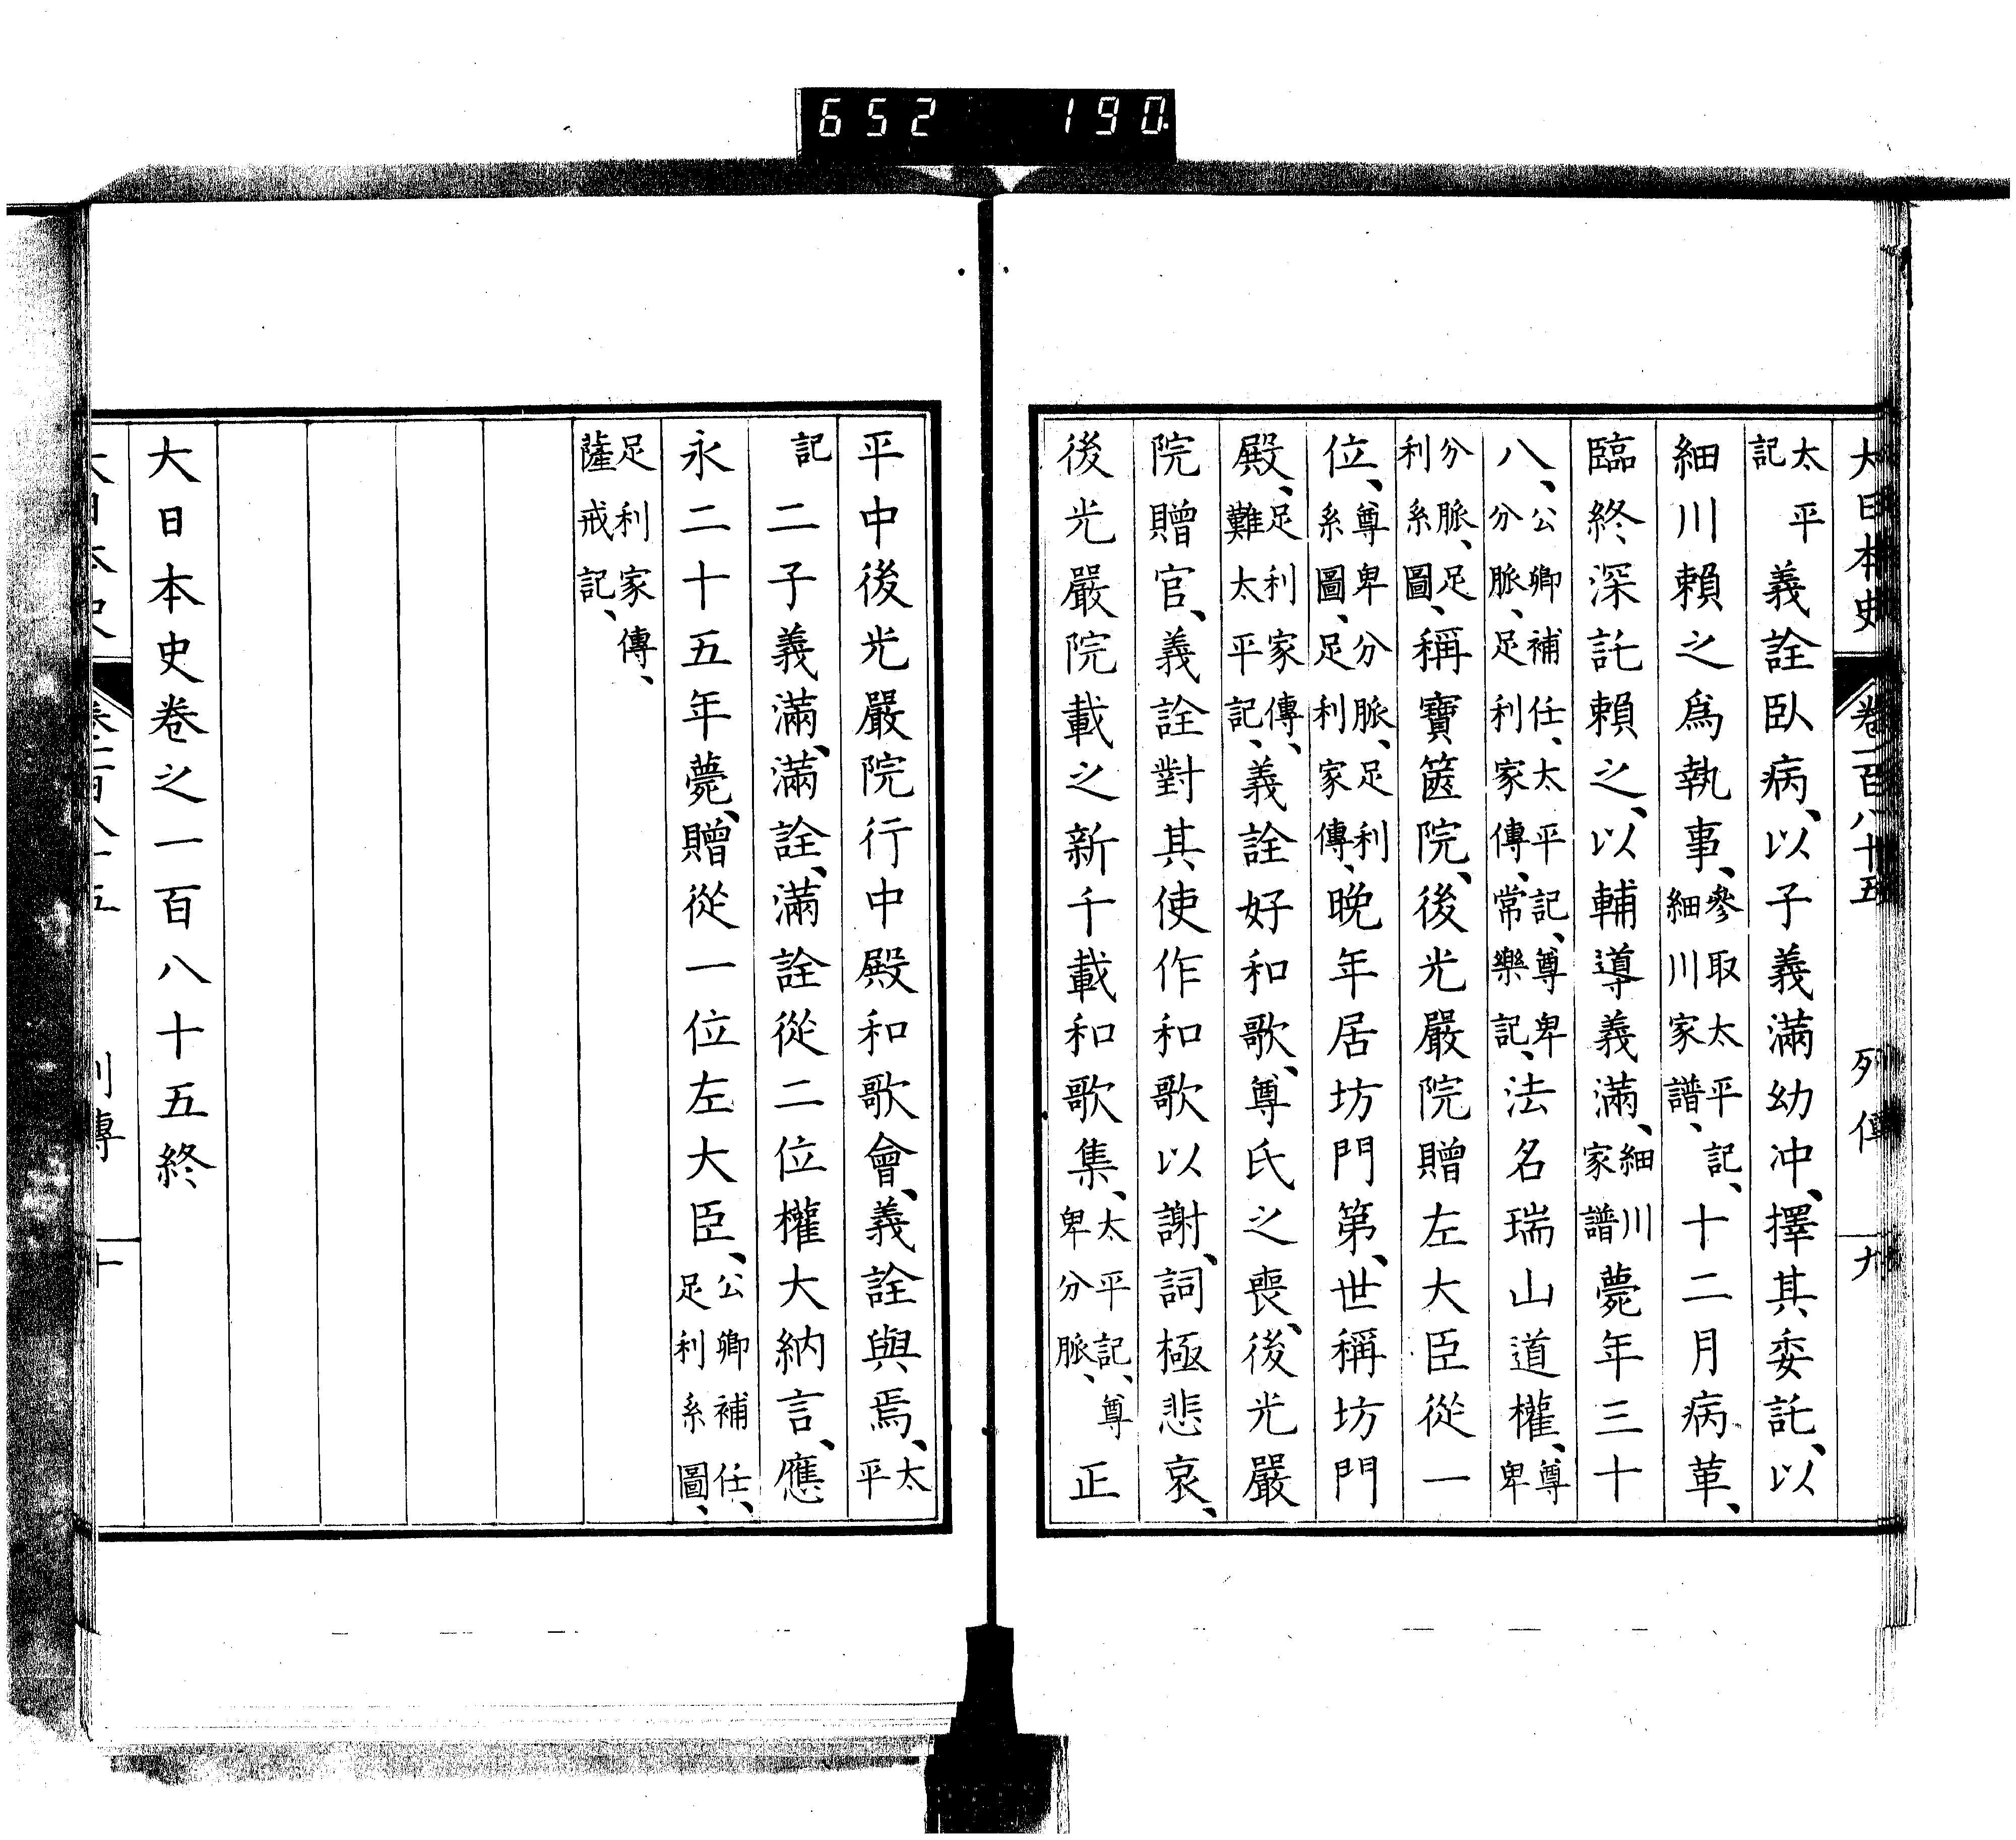 652 190
大日本史 卷一百八十五 列傳 九
太平記義詮臥病、以子義滿幼冲、擇其委託、以
細川賴之爲執事、參取太平記、細川家譜、十二月病革、
臨終深託賴之、以輔導義滿、細川家譜薨年三十
八、公卿補任、太平記、尊卑分脈、足利家傳、常樂記、法名瑞山道權、尊卑
分脈、足利系圖、稱寶篋院、後光嚴院贈左大臣從一
位、尊卑分脈、足利系圖、足利家傳、晚年居坊門第、世稱坊門
殿、足利家傳、難太平記、義詮好和歌、尊氏之喪、後光嚴
院贈官、義詮對其使作和歌以謝、詞極悲哀、
後光嚴院載之新千載和歌集、太平記、尊卑分脈、正
平中後光嚴院行中殿和歌會、義詮與焉、太平
記二子義滿、滿詮、滿詮從二位權大納言、應
永二十五年薨、贈從一位左大臣、公卿補任、足利系圖、
足利家傳、薩戒記、
大日本史卷之一百八十五終
大日本史 卷一百八十五 列傳 十